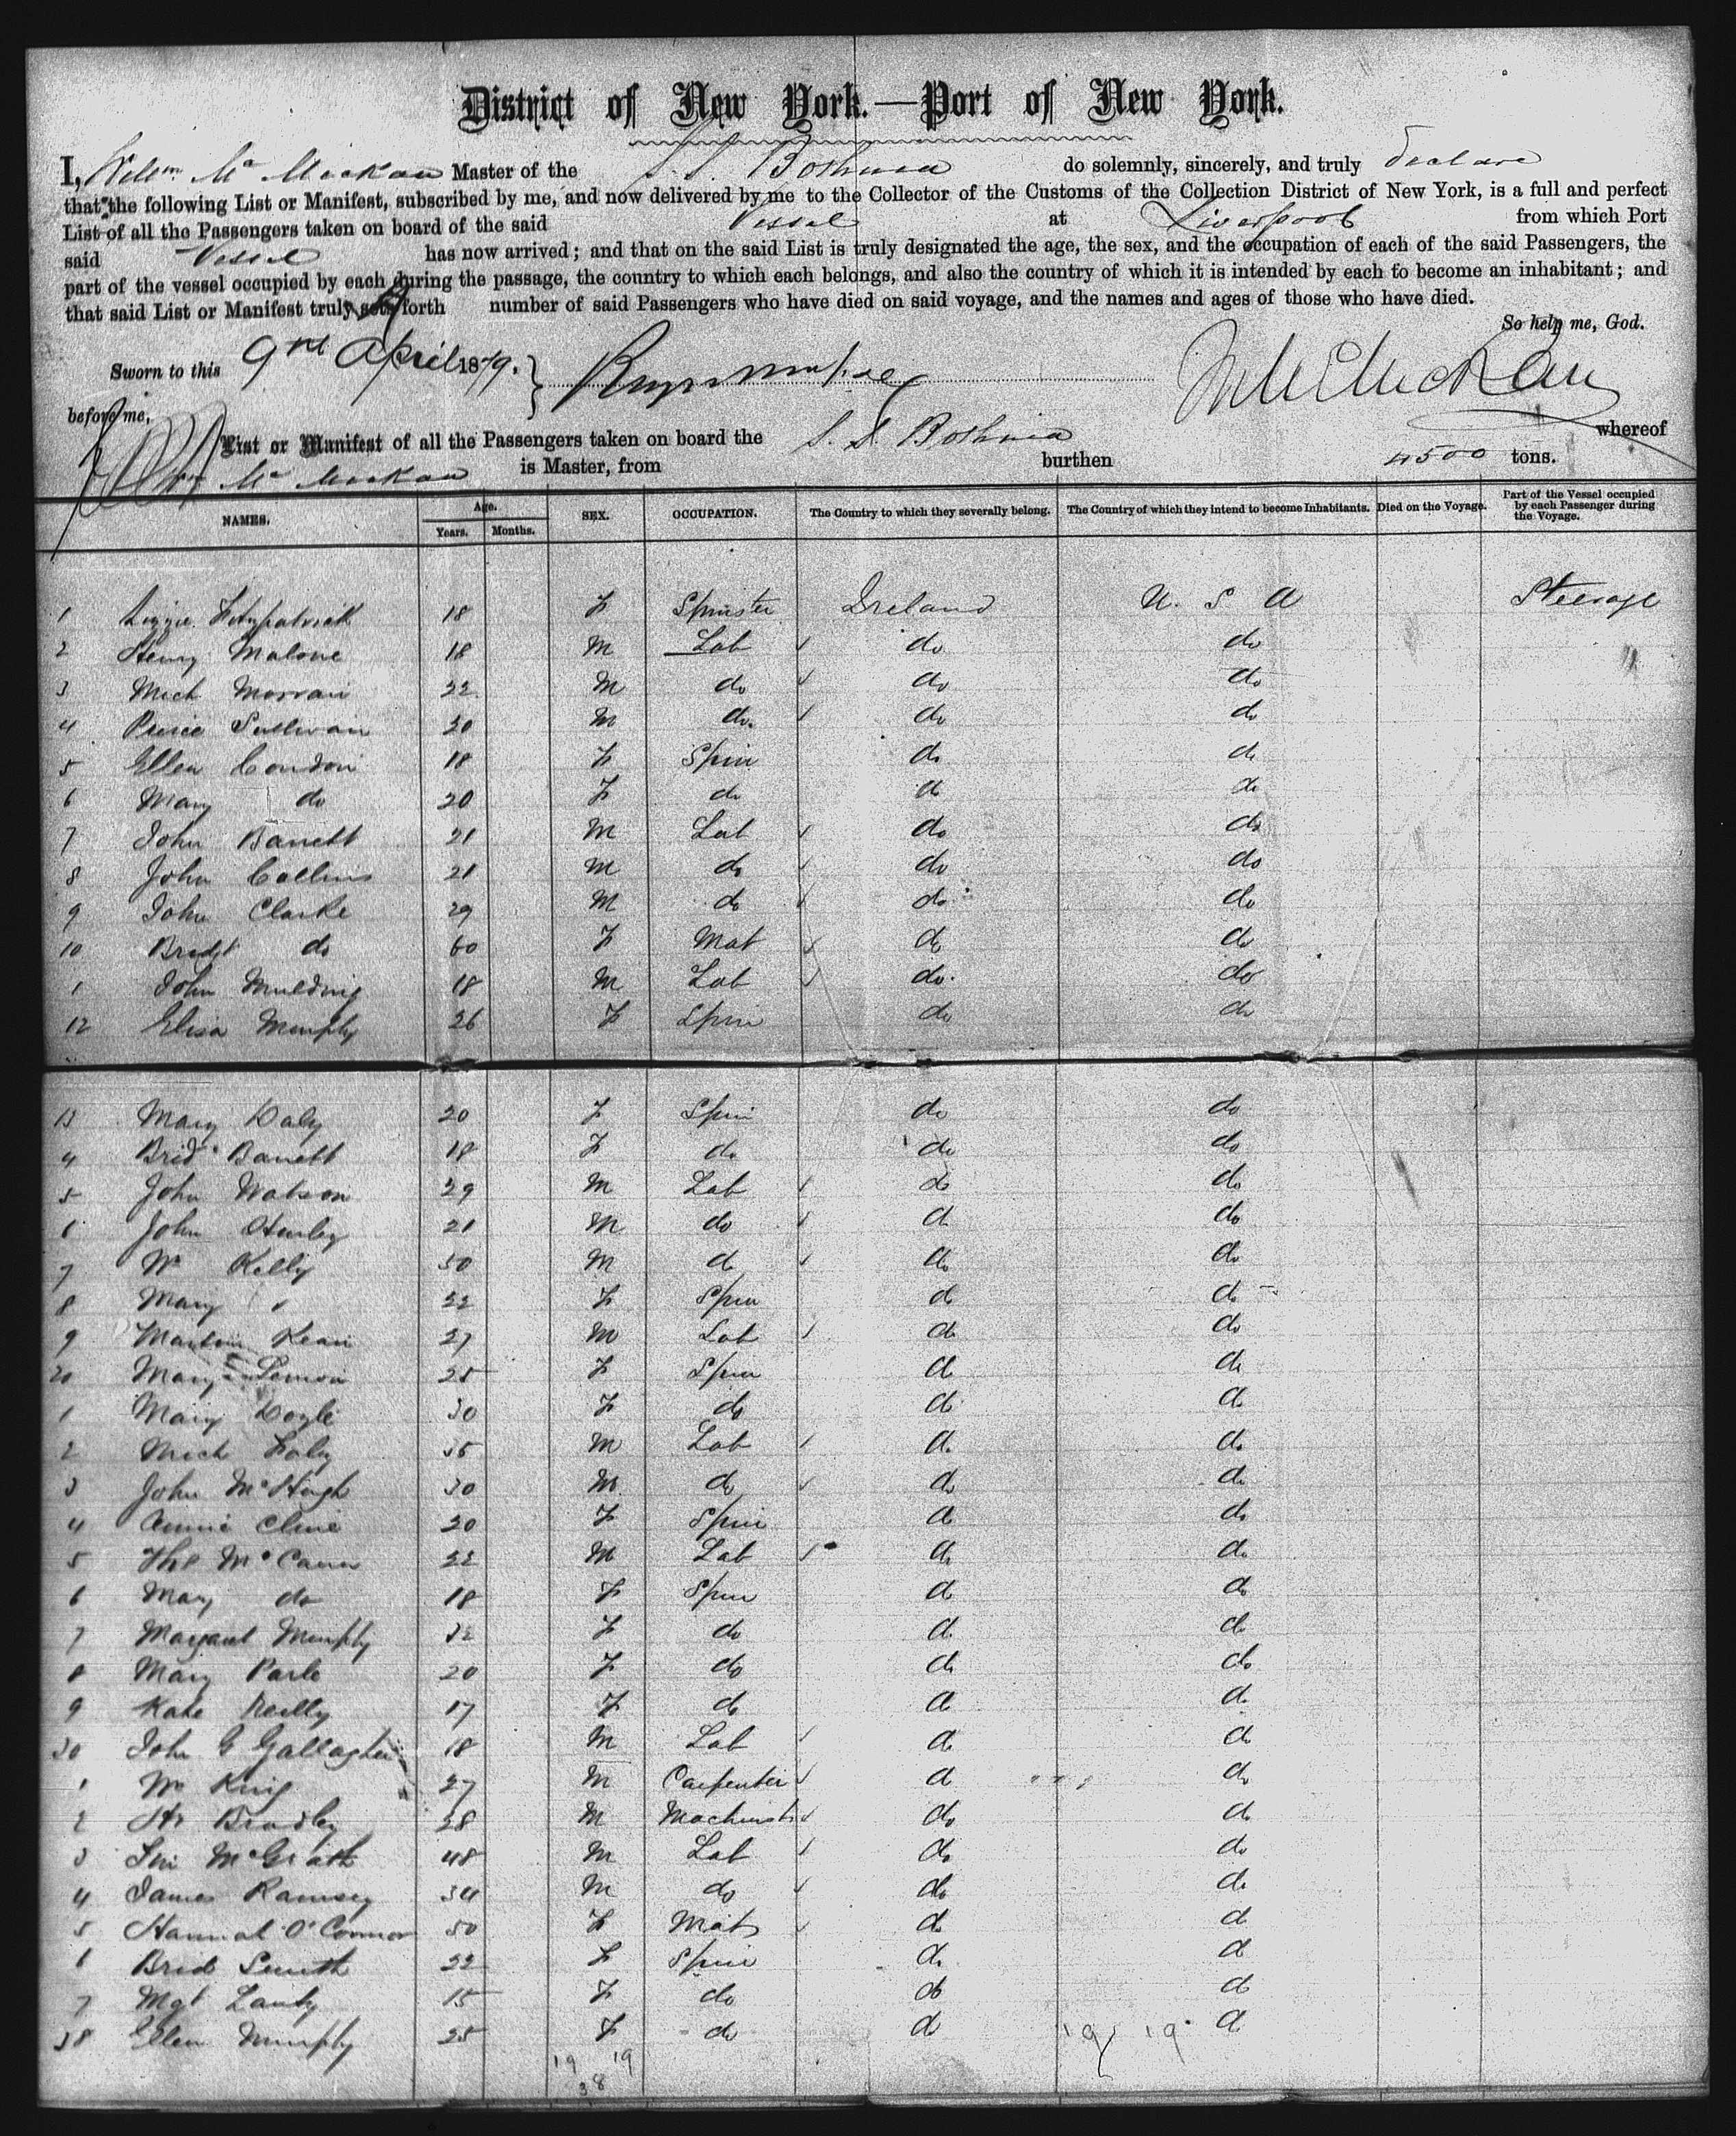 District of New York.—Port of New York.
I, Willm Mc Mickan Master of the S.S. Bothnia do solemnly, sincerely, and truly declare
that the following List or Manifest, subscribed by me, and now delivered by me to the Collector of the Customs of the Collection District of New York, is a full and perfect
List of all the Passengers taken on board of the said Vessel at Liverpool from which Port
said Vessel has now arrived; and that on the said List is truly designated the age, the sex, and the occupation of each of the said Passengers, the
part of the vessel occupied by each during the passage, the country to which each belongs, and also the country of which it is intended by each to become an inhabitant; and
that said List or Manifest truly sets forth number of said Passengers who have died on said voyage, and the names and ages of those who have died.
So help me, God.
Sworn to this 9 April 1879.
before me,
List or Manifest of all the Passengers taken on board the S.S. Bothnia whereof
Wm Mc Mickan is Master, from burthen 4500 tons.
NAMES. Age. Years. Months. SEX. OCCUPATION. The Country to which they severally belong. The Country of which they intend to become Inhabitants. Died on the Voyage. Part of the Vessel occupied by each Passenger during the Voyage.
1 Lizzie Fitzpatrick 18 F Spinster Ireland U. S A Steerage
2 Henry Malone 18 M Lab do do "
3 Mich Morran 22 M do do do
4 Pierce Sullivan 20 M do. do do
5 Ellen Condon 18 F Spin do do
6 Mary do 20 F do do do
7 John Barrett 21 M Lab do do
8 John Collins 21 M do do do
9 John Clarke 29 M do do do
10 Bridgt do 60 F Mat do do
1 John Mulding 18 M Lab do do
12 Elisa Murphy 26 F Spin do do
13 Mary Daly 20 F Spin do do
4 Brid Barrett 18 F do do do
5 John Watson 29 M Lab do do
6 John Hurley 21 M do do do
7 Wm Kelly 30 M do do do
8 Mary " 22 F Spin do do
9 Martin Kean 27 M Lab do do
20 Mary 25 F Spin do do
1 Mary Doyle 30 F do do do
2 Mich Foley 35 M Lab do do
3 John McHugh 30 M do do do
4 Annie Cline 20 F Spin do do
5 Ths McCann 22 M Lab do do
6 Mary do 18 F Spin do do
7 Margaret Murphy 32 F do do do
8 Mary Parle 20 F do do do
9 Kate Reilly 17 F do do do
30 John G Gallagher 18 M Lab do do
1 Wm King 27 M Carpenter do do
2 Hy Bradley 28 M Machinist do do
3 Jno McGrath 48 M Lab do do
4 James Ramsey 34 M do do do
5 Hannah O'Connor 50 F Mat do do
6 Brid Smith 22 F Spin do do
7 Mgt 15 F do do do
38 Ellen Murphy 25 F do do do
19 19 19 19
38